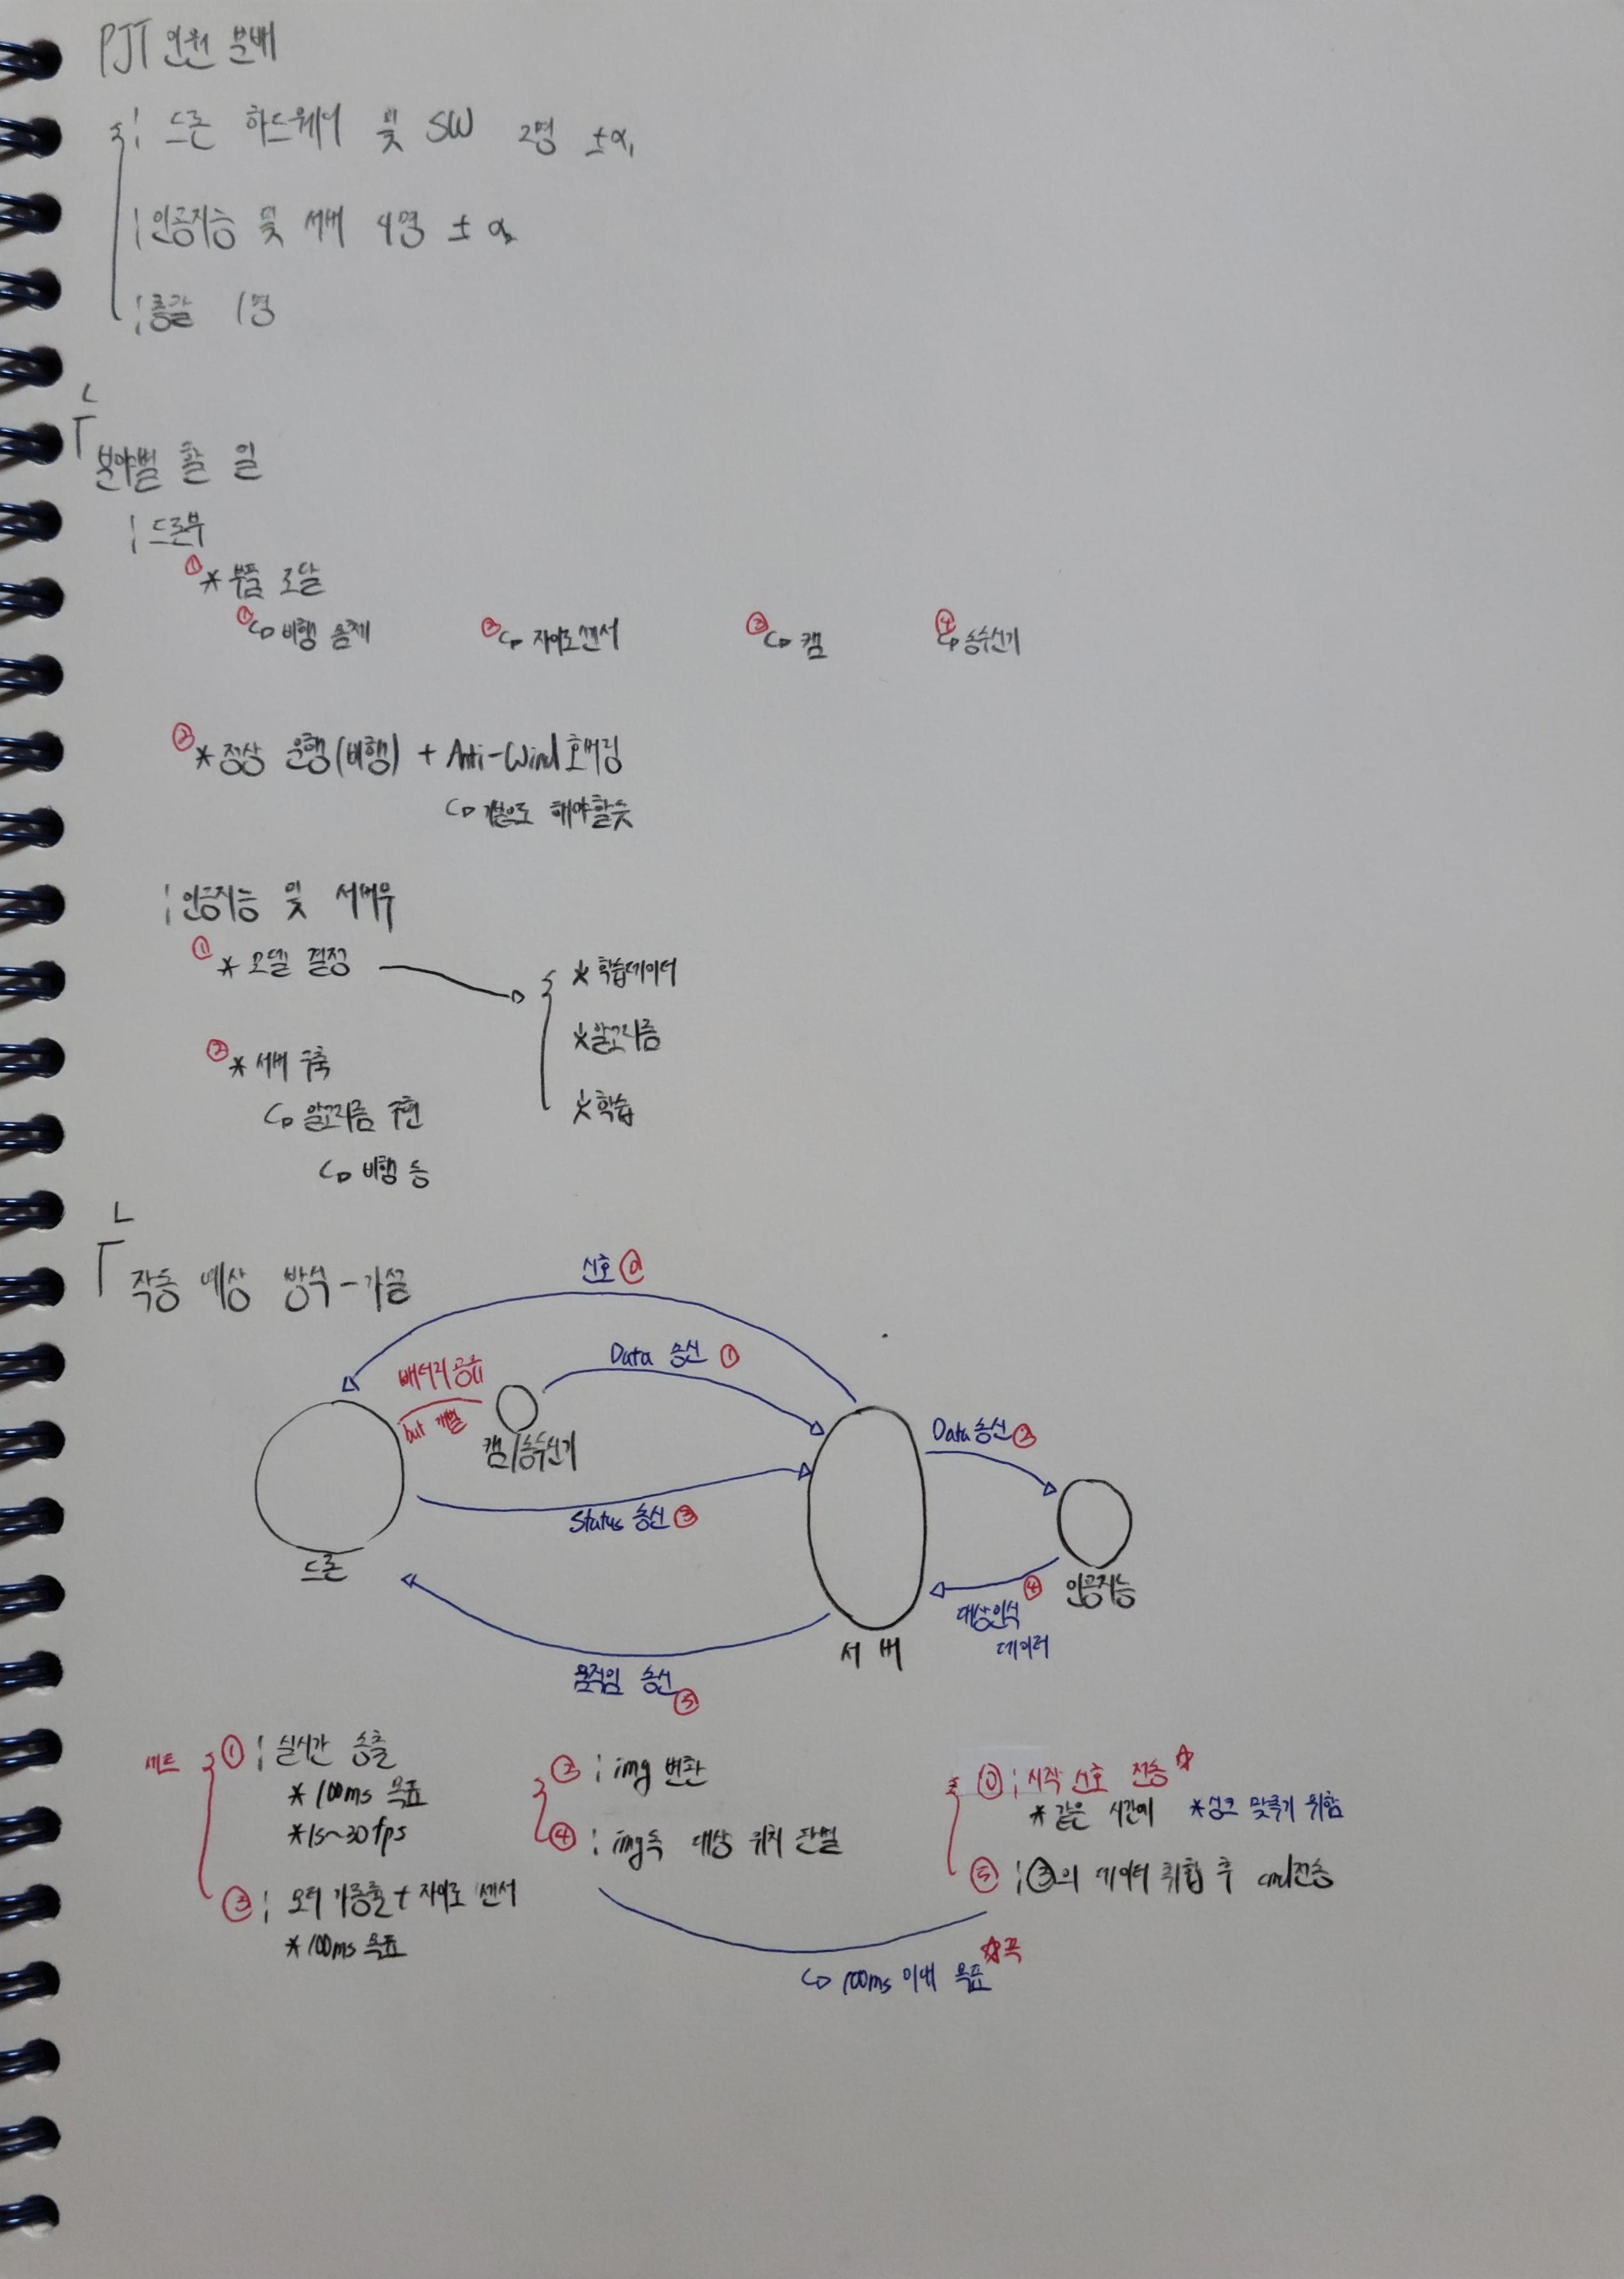 PJT 인원 분배
드론 하드웨어 및 SW 2명 ±α₁
인공지능 및 서버 4명 ±α₂
총괄 1명
분야별 할 일
드론부
① * 부품 조달
① 비행 몸체 ② 자이로센서 ③ 캠 ④ 송수신기
② * 정상 운행(비행) + Anti-Wind 호버링
해야할듯
인공지능 및 서버부
① * 모델 결정
* 학습데이터
* 알고리즘
* 학습
② * 서버 구축
알고리즘 구현
비행 등
작동 예상 방식 - 가설
신호 ⓪
배터리 공유
but 개별
Data 송신 ①
캠/송수신기
Data 송신 ②
Status 송신 ③
드론
④
인공지능
대상인식
데이터
서버
움직임 송신 ⑤
세트 ① ; 실시간 송출
* 100ms 목표
* 1s~30fps
③ ; 모터 가동률 + 자이로 센서
* 100ms 목표
② ; img 변환
④ ; img속 대상 위치 판별
⓪ ; 시작 신호 전송 ☆
* 같은 시간에 * 싱크 맞추기 위함
⑤ ; ③의 데이터 취합 후 cmd전송
100ms 이내 목표 ☆꼭